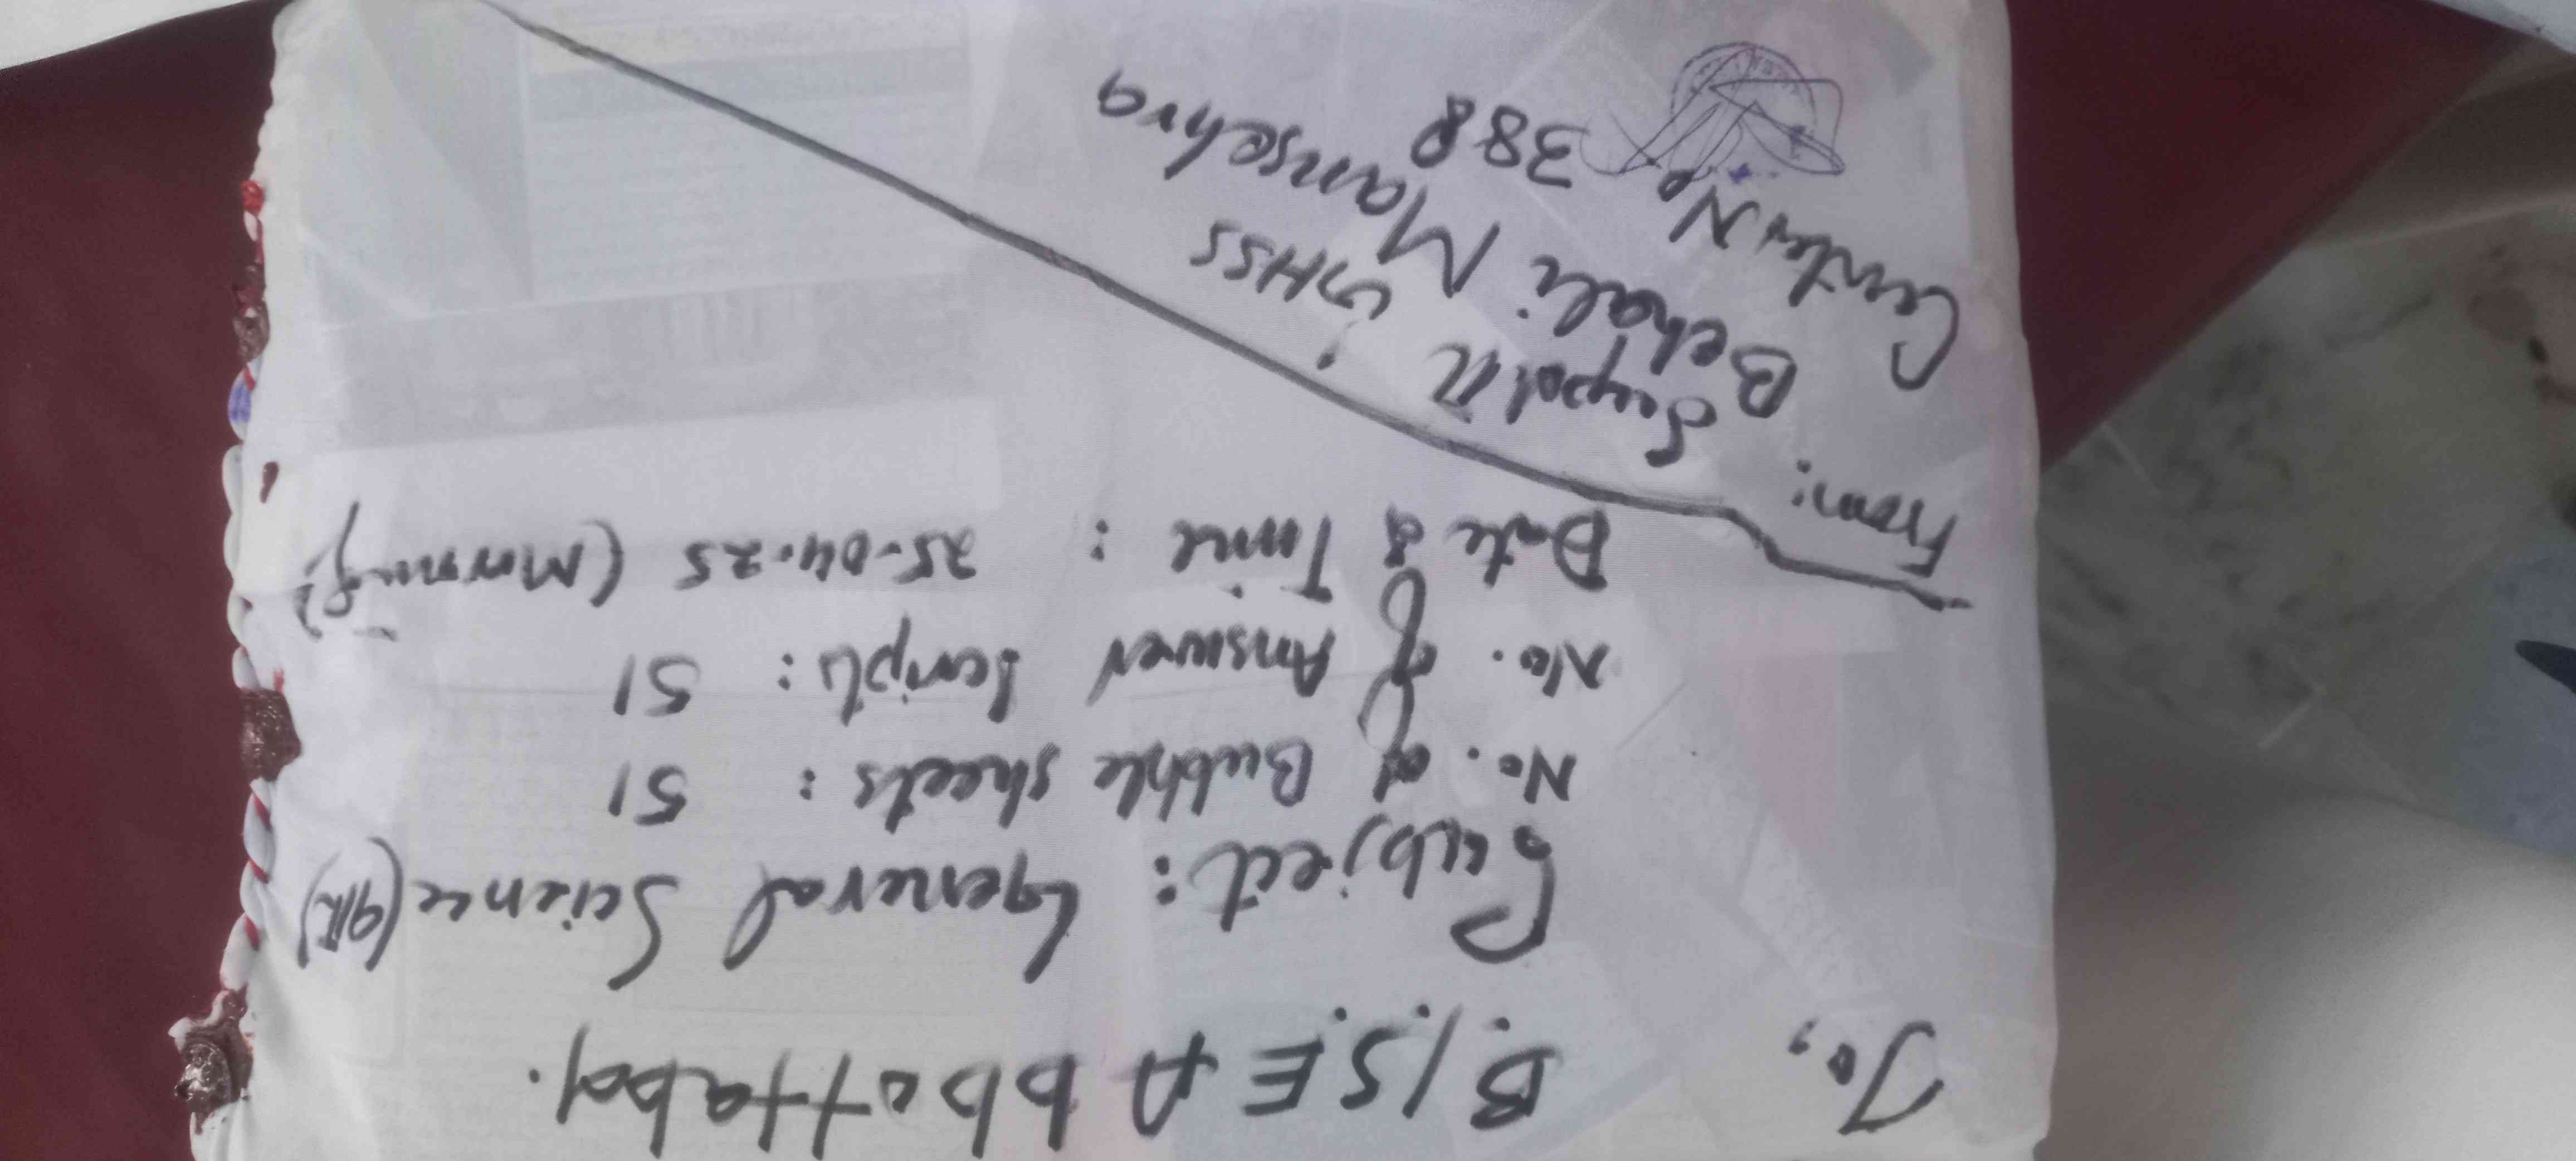 To,
B.I.S.E Abbottabad.
Subject: General Science (9th)
No. of Bubble sheets: 51
No. of Answer Scripts: 51
Date & Time: 25-04-25 (Morning)
From:
Supdtt GHSS
Behali Mansehra
Center No 388